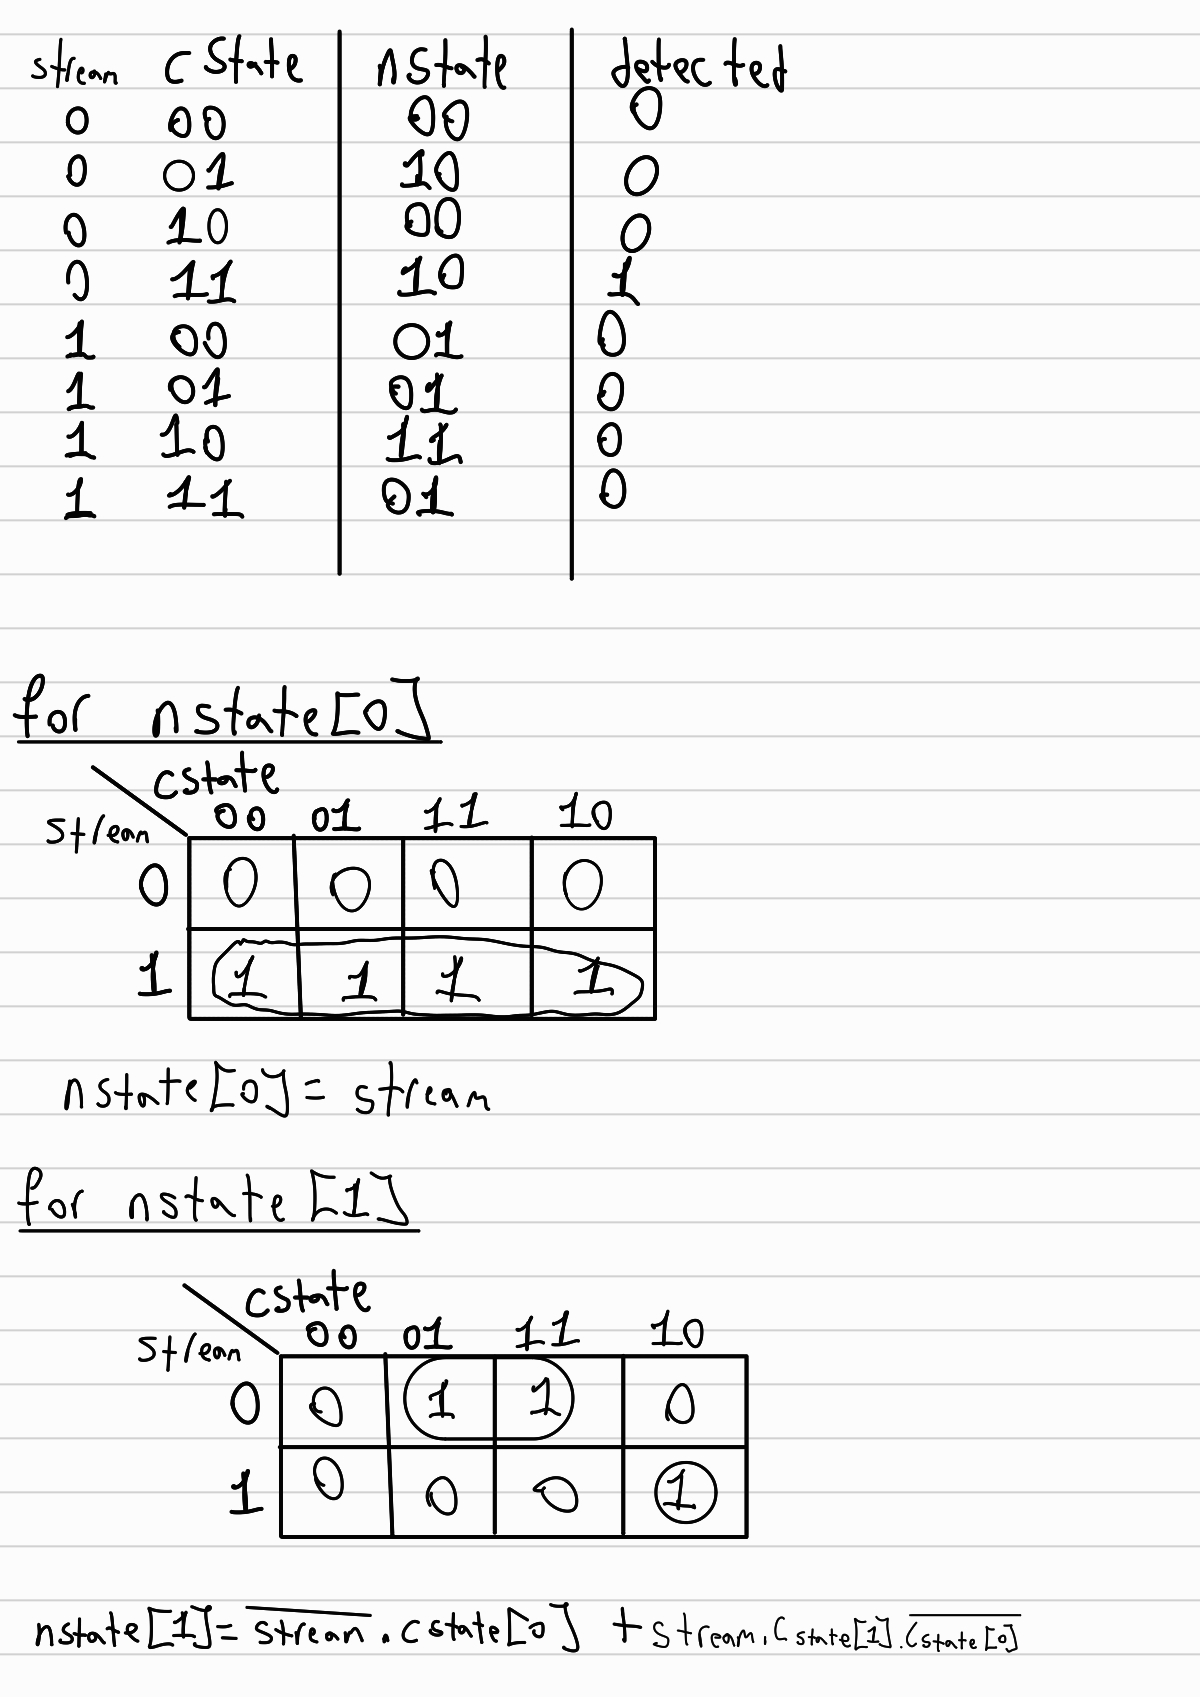 stream cState nState detected
0 00 00 0
0 01 10 0
0 10 00 0
0 11 10 1
1 00 01 0
1 01 01 0
1 10 11 0
1 11 01 0
for nstate[0]
cstate
stream 00 01 11 10
0 0 0 0 0
1 1 1 1 1
nstate[0] = stream
for nstate[1]
cstate
stream 00 01 11 10
0 0 1 1 0
1 0 0 0 1
nstate[1] = \overline{stream} . cstate[0] + stream . cstate[1] . \overline{cstate[0]}